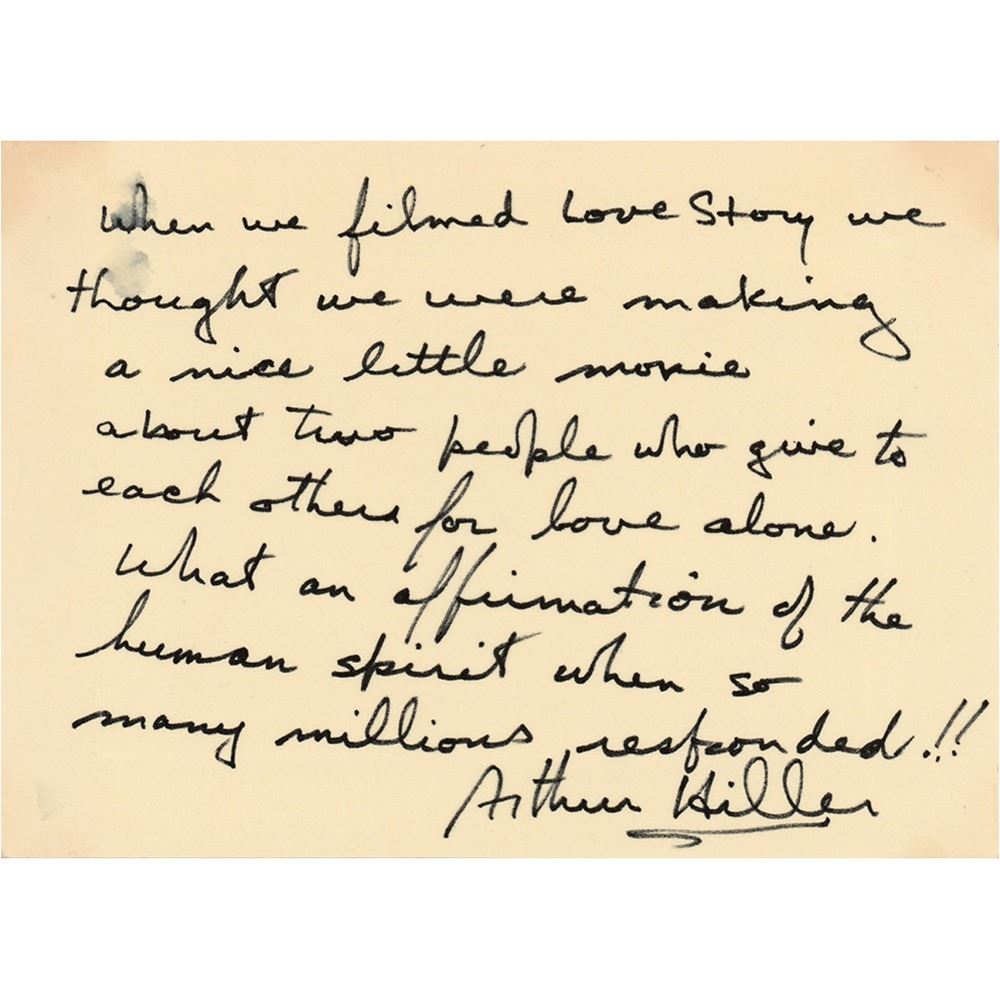 When we filmed Love Story we
thought we were making
a nice little movie
about two people who give to
each others for love alone.
What an affirmation of the
human spirit when so
many millions responded!!!
Arthur Hiller